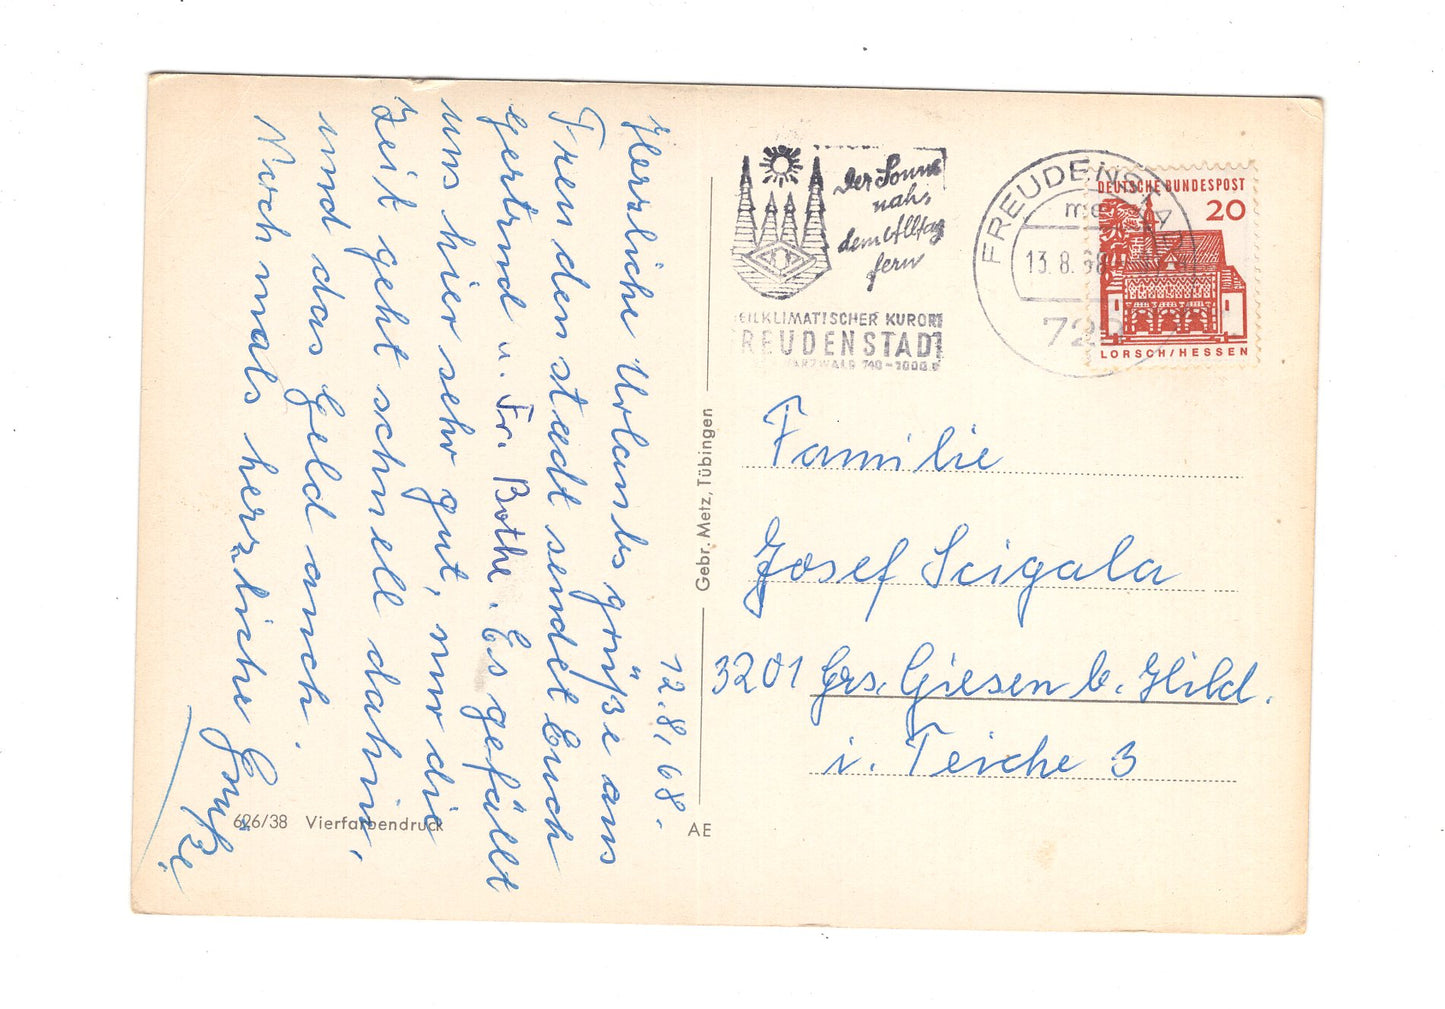 12.8.68.
Herzliche Urlaubsgrüße aus
Freudenstadt sendet Euch
Gertrud u. Fr. Bothe. Es gefällt
uns hier sehr gut, nur die
Zeit geht schnell dahin,
und das Geld auch.
Nochmals herzliche Grüße!
626/38 Vierfarbendruck
AE
Gebr. Metz, Tübingen
Der Sonne
nah,
dem Alltag
fern
EILKLIMATISCHER KURORT
REUDENSTADT
ARZWALD 740-1000
FREUDENSTADT
13.8.68
DEUTSCHE BUNDESPOST
20
LORSCH/HESSEN
Familie
Josef Scigala
3201 Grs. Giesen b. Hild.
i. Teiche 3